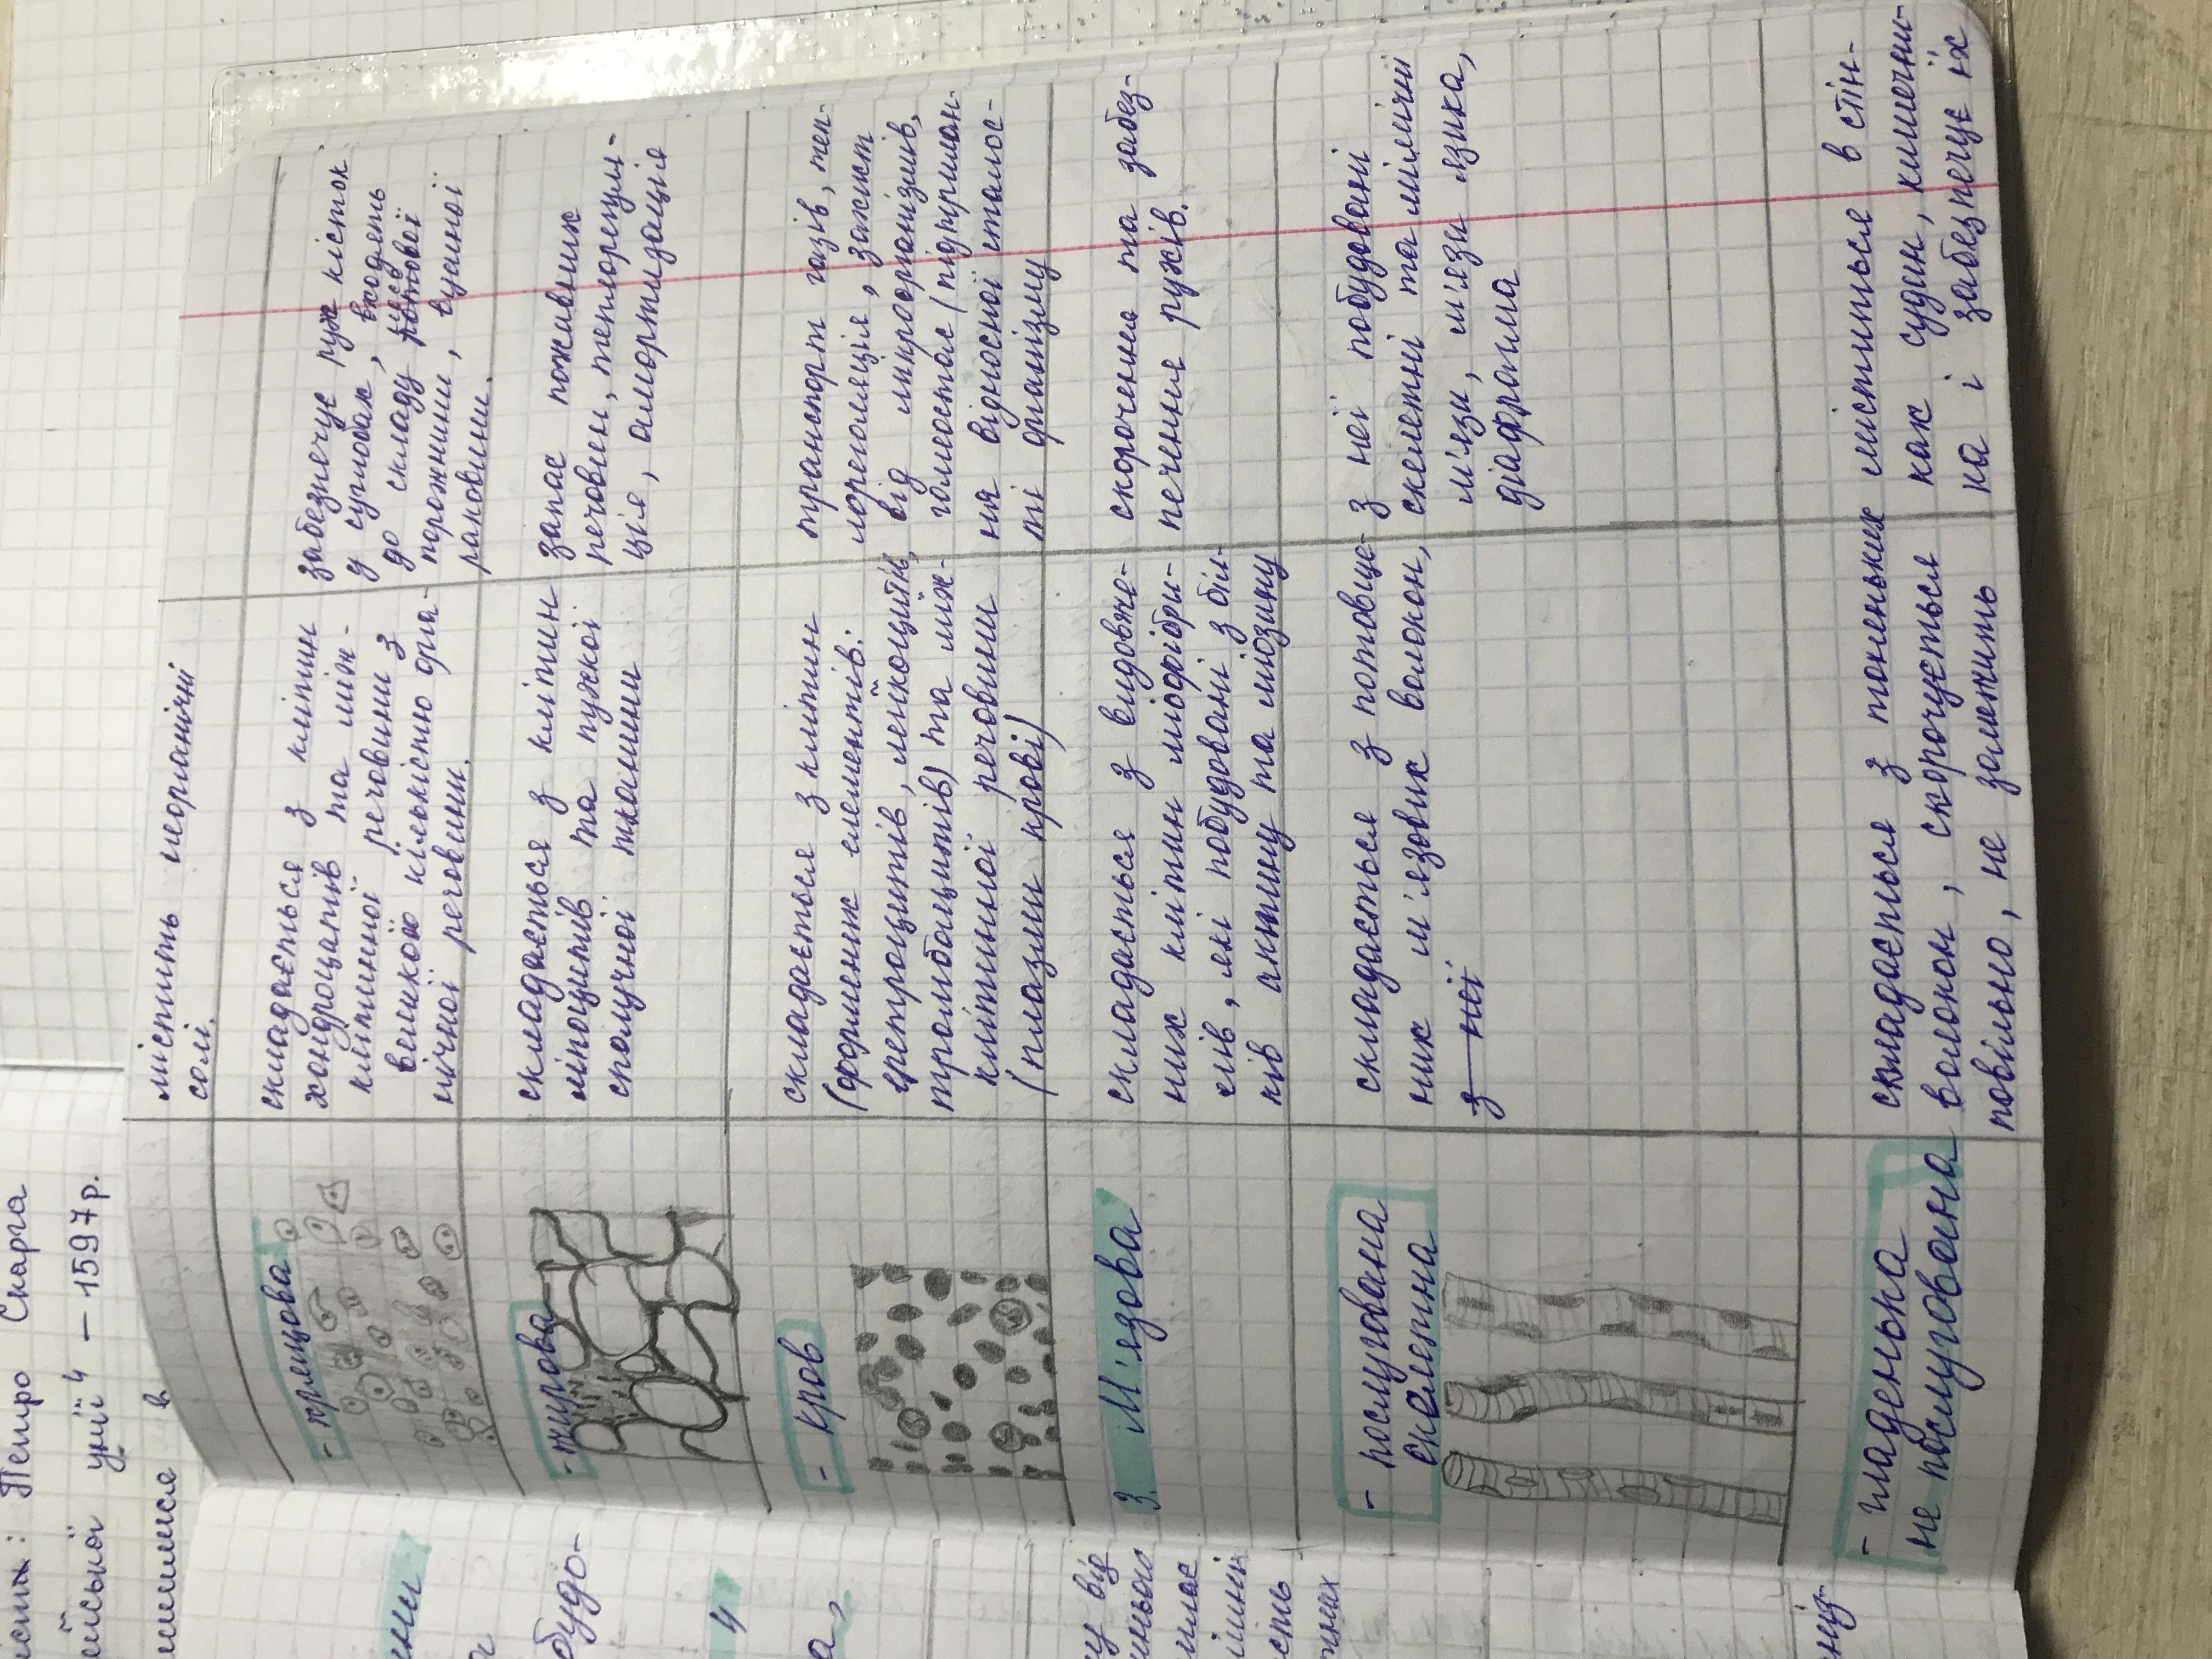 Петро Скарга
унії" – 1597 р.
в
містить неорганічні
солі.
- хрящова
складається з клітин
хондроцитів та між-
клітинної речовини з
великою кількістю орга-
нічної речовини.
забезпечує рух кісток
у суглобах, входять
до складу носа
порожнини, вушної
раковини.
- жирова
складається з клітин
ліпоцитів та пухкої
сполучної тканини
запас поживних
речовин, теплорегуля-
ція, амортизація
- кров
складається з клітин
(формених елементів:
еретроцитів, лейкоцитів,
тромбоцитів) та між-
клітинної речовини
(плазми крові)
транспорт газів, теп-
лорегуляція, захист
від мікроорганізмів,
гомеостас (підтриман-
ня відносної сталос-
ті організму
3. М'язова
складається з видовже-
них клітин міофібри-
лів, які побудовані з біл-
ків актину та міозину
скорочення та забез-
печення рухів.
- посмугована
скелетна
складається з потовще-
них м'язових волокон,
з неї
з неї побудовані
скелетні та мімічні
м'язи, м'язи язика,
діафрагма
- гладенька
не посмугована
складається з тоненьких
волокон, скорочується
повільно, не залежить
міститься в стін-
ках судин, кишечни-
ка і забезпечує їх
будо-
від